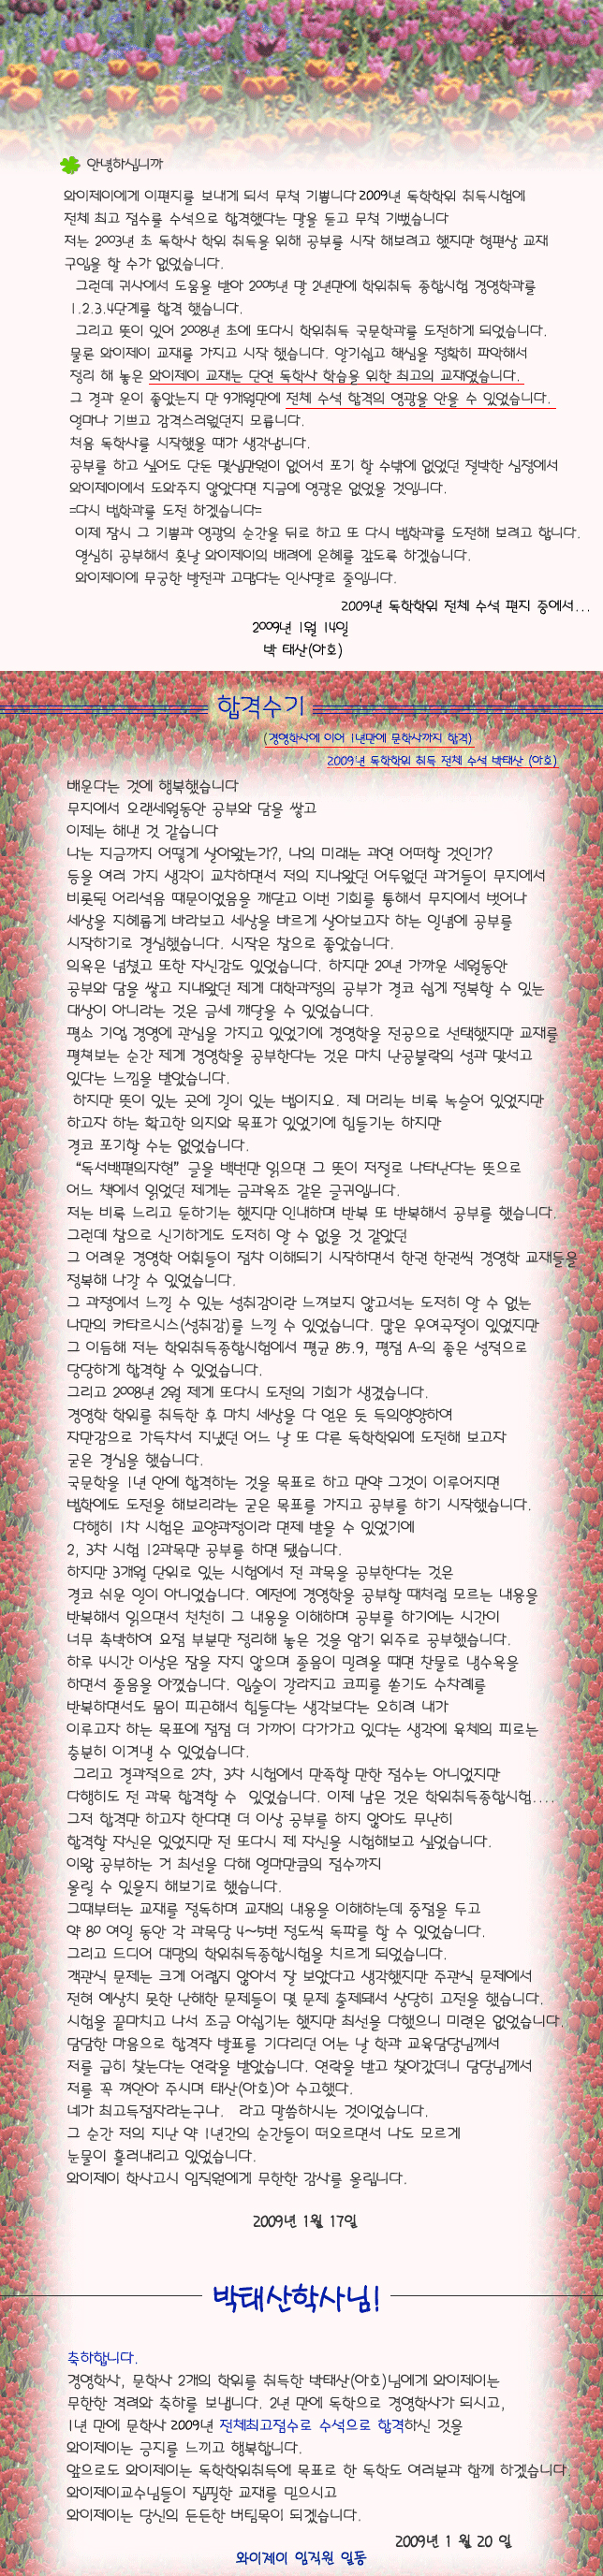 안녕하십니까
와이제이에게 이편지를 보내게 되서 무척 기쁩니다 2009년 독학학위 취득시험에
전체 최고 점수를 수석으로 합격했다는 말을 듣고 무척 기뻤습니다
저는 2003년 초 독학사 학위 취득을 위해 공부를 시작 해보려고 했지만 형편상 교재
구입을 할 수가 없었습니다.
그런데 귀사에서 도움을 받아 2005년 말 2년만에 학위취득 종합시험 경영학과를
1.2.3.4단계를 합격 했습니다.
그리고 뜻이 있어 2008년 초에 또다시 학위취득 국문학과를 도전하게 되었습니다.
물론 와이제이 교재를 가지고 시작 했습니다. 알기쉽고 핵심을 정확히 파악해서
정리 해 놓은 와이제이 교재는 단연 독학사 학습을 위한 최고의 교재였습니다.
그 결과 운이 좋았는지 만 9개월만에 전체 수석 합격의 영광을 안을 수 있었습니다.
얼마나 기쁘고 감격스러웠던지 모릅니다.
처음 독학사를 시작했을 때가 생각납니다.
공부를 하고 싶어도 단돈 몇십만원이 없어서 포기 할 수밖에 없었던 절박한 심정에서
와이제이에서 도와주지 않았다면 지금에 영광은 없었을 것입니다.
=다시 법학과를 도전 하겠습니다=
이제 잠시 그 기쁨과 영광의 순간을 뒤로 하고 또 다시 법학과를 도전해 보려고 합니다.
열심히 공부해서 훗날 와이제이의 배려에 은혜를 갚도록 하겠습니다.
와이제이에 무궁한 발전과 고맙다는 인사말로 줄입니다.
2009년 독학학위 전체 수석 편지 중에서...
2009년 1월 14일
박 태산(아호)
합격수기
(경영학사에 이어 1년만에 문학사까지 합격)
2009년 독학학위 취득 전체 수석 박태산 (아호)
배운다는 것에 행복했습니다
무지에서 오랜세월동안 공부와 담을 쌓고
이제는 해낸 것 같습니다
나는 지금까지 어떻게 살아왔는가?, 나의 미래는 과연 어떠할 것인가?
등을 여러 가지 생각이 교차하면서 저의 지나왔던 어두웠던 과거들이 무지에서
비롯된 어리석음 때문이었음을 깨달고 이번 기회를 통해서 무지에서 벗어나
세상을 지혜롭게 바라보고 세상을 바르게 살아보고자 하는 일념에 공부를
시작하기로 결심했습니다. 시작은 참으로 좋았습니다.
의욕은 넘쳤고 또한 자신감도 있었습니다. 하지만 20년 가까운 세월동안
공부와 담을 쌓고 지내왔던 제게 대학과정의 공부가 결코 쉽게 정복할 수 있는
대상이 아니라는 것은 금세 깨달을 수 있었습니다.
평소 기업 경영에 관심을 가지고 있었기에 경영학을 전공으로 선택했지만 교재를
펼쳐보는 순간 제게 경영학을 공부한다는 것은 마치 난공불락의 성과 맞서고
있다는 느낌을 받았습니다.
하지만 뜻이 있는 곳에 길이 있는 법이지요. 제 머리는 비록 녹슬어 있었지만
하고자 하는 확고한 의지와 목표가 있었기에 힘들기는 하지만
결코 포기할 수는 없었습니다.
“독서백편의자현” 글을 백번만 읽으면 그 뜻이 저절로 나타난다는 뜻으로
어느 책에서 읽었던 제게는 금과옥조 같은 글귀입니다.
저는 비록 느리고 둔하기는 했지만 인내하며 반복 또 반복해서 공부를 했습니다.
그런데 참으로 신기하게도 도저히 알 수 없을 것 같았던
그 어려운 경영학 어휘들이 점차 이해되기 시작하면서 한권 한권씩 경영학 교재들을
정복해 나갈 수 있었습니다.
그 과정에서 느낄 수 있는 성취감이란 느껴보지 않고서는 도저히 알 수 없는
나만의 카타르시스(성취감)를 느낄 수 있었습니다. 많은 우여곡절이 있었지만
그 이듬해 저는 학위취득종합시험에서 평균 85.9, 평점 A-의 좋은 성적으로
당당하게 합격할 수 있었습니다.
그리고 2008년 2월 제게 또다시 도전의 기회가 생겼습니다.
경영학 학위를 취득한 후 마치 세상을 다 얻은 듯 득의양양하여
자만감으로 가득차서 지냈던 어느 날 또 다른 독학학위에 도전해 보고자
굳은 결심을 했습니다.
국문학을 1년 안에 합격하는 것을 목표로 하고 만약 그것이 이루어지면
법학에도 도전을 해보리라는 굳은 목표를 가지고 공부를 하기 시작했습니다.
다행히 1차 시험은 교양과정이라 면제 받을 수 있었기에
2, 3차 시험 12과목만 공부를 하면 됐습니다.
하지만 3개월 단위로 있는 시험에서 전 과목을 공부한다는 것은
결코 쉬운 일이 아니었습니다. 예전에 경영학을 공부할 때처럼 모르는 내용을
반복해서 읽으면서 천천히 그 내용을 이해하며 공부를 하기에는 시간이
너무 촉박하여 요점 부분만 정리해 놓은 것을 암기 위주로 공부했습니다.
하루 4시간 이상은 잠을 자지 않으며 졸음이 밀려올 때면 찬물로 냉수욕을
하면서 졸음을 아꼈습니다. 입술이 갈라지고 코피를 쏟기도 수차례를
반복하면서도 몸이 피곤해서 힘들다는 생각보다는 오히려 내가
이루고자 하는 목표에 점점 더 가까이 다가가고 있다는 생각에 육체의 피로는
충분히 이겨낼 수 있었습니다.
그리고 결과적으로 2차, 3차 시험에서 만족할 만한 점수는 아니었지만
다행히도 전 과목 합격할 수 있었습니다. 이제 남은 것은 학위취득종합시험....
그저 합격만 하고자 한다면 더 이상 공부를 하지 않아도 무난히
합격할 자신은 있었지만 전 또다시 제 자신을 시험해보고 싶었습니다.
이왕 공부하는 거 최선을 다해 얼마만큼의 점수까지
올릴 수 있을지 해보기로 했습니다.
그때부터는 교재를 정독하며 교재의 내용을 이해하는데 중점을 두고
약 80 여일 동안 각 과목당 4~5번 정도씩 독파를 할 수 있었습니다.
그리고 드디어 대망의 학위취득종합시험을 치르게 되었습니다.
객관식 문제는 크게 어렵지 않아서 잘 보았다고 생각했지만 주관식 문제에서
전혀 예상치 못한 난해한 문제들이 몇 문제 출제돼서 상당히 고전을 했습니다.
시험을 끝마치고 나서 조금 아쉽기는 했지만 최선을 다했으니 미련은 없었습니다.
담담한 마음으로 합격자 발표를 기다리던 어는 날 학과 교육담당님께서
저를 급히 찾는다는 연락을 받았습니다. 연락을 받고 찾아갔더니 담당님께서
저를 꼭 껴안아 주시며 태산(아호)아 수고했다.
네가 최고득점자라는구나. 라고 말씀하시는 것이었습니다.
그 순간 저의 지난 약 1년간의 순간들이 떠오르면서 나도 모르게
눈물이 흘러내리고 있었습니다.
와이제이 학사고시 임직원에게 무한한 감사를 올립니다.
2009년 1월 17일
박태산학사님!
축하합니다.
경영학사, 문학사 2개의 학위를 취득한 박태산(아호)님에게 와이제이는
무한한 격려와 축하를 보냅니다. 2년 만에 독학으로 경영학사가 되시고,
1년 만에 문학사 2009년 전체최고점수로 수석으로 합격하신 것을
와이제이는 긍지를 느끼고 행복합니다.
앞으로도 와이제이는 독학학위취득에 목표로 한 독학도 여러분과 함께 하겠습니다.
와이제이교수님들이 집필한 교재를 믿으시고
와이제이는 당신의 든든한 버팀목이 되겠습니다.
2009년 1 월 20 일
와이제이 임직원 일동